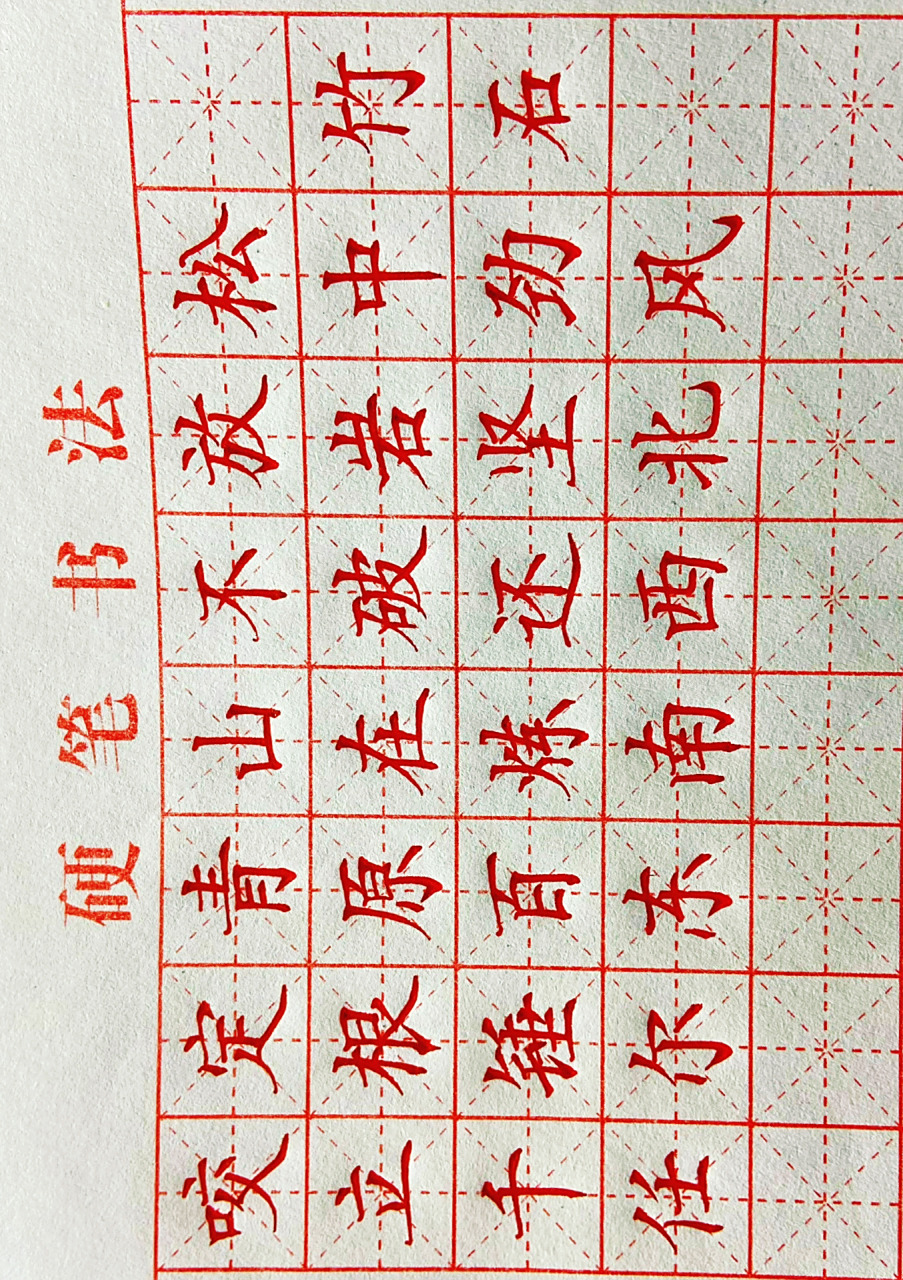 硬笔书法
咬定青山不放松
立根原在破岩中
千锤百炼还坚劲
任尔东南西北风
竹石